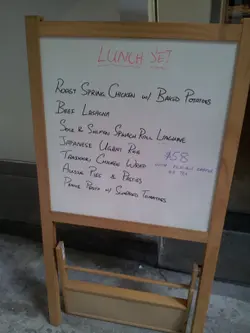 LUNCH SET
ROAST SPRING CHICKEN W/ BAKED POTATOES
BEEF LASAGNA
SOLE & SALMON SPINACH ROLL LINGUINE
JAPANESE UNAGI RICE
$58
TANDOORI CHICKEN WRAP
AUSSIE PIES & PASTIES
PENNE PESTO W/ SUNDRIED TOMATOES